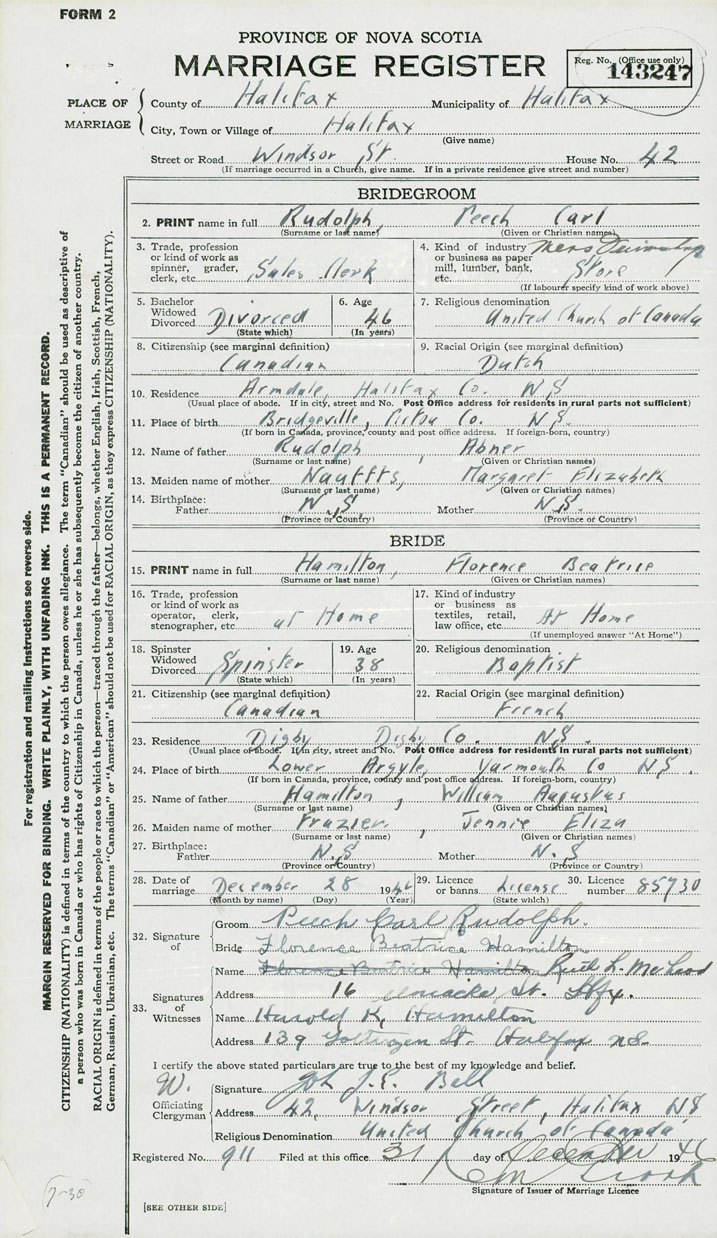 FORM 2
PROVINCE OF NOVA SCOTIA
MARRIAGE REGISTER
Reg. No. (Office use only)
143247
PLACE OF MARRIAGE
County of Halifax Municipality of Halifax
City, Town or Village of Halifax
(Give name)
Street or Road Windsor St. House No. 42
(If marriage occurred in a Church, give name. If in a private residence give street and number)
BRIDEGROOM
2. PRINT name in full Rudolph, Peech Carl
(Surname or last name) (Given or Christian names)
3. Trade, profession or kind of work as spinner, grader, clerk, etc. Sales Clerk
4. Kind of industry or business as paper mill, lumber, bank, etc. Mens Store
(If labourer specify kind of work above)
5. Bachelor Widowed Divorced Divorced
(State which)
6. Age 46
(In years)
7. Religious denomination
United Church of Canada
8. Citizenship (see marginal definition)
Canadian
9. Racial Origin (see marginal definition)
Dutch
10. Residence Armdale, Halifax Co. N.S
(Usual place of abode. If in city, street and No. Post Office address for residents in rural parts not sufficient)
11. Place of birth Bridgeville, Pictou Co. N.S.
(If born in Canada, province, county and post office address. If foreign-born, country)
12. Name of father Rudolph, Abner
(Surname or last name) (Given or Christian names)
13. Maiden name of mother Margaret Elizabeth
(Surname or last name) (Given or Christian names)
14. Birthplace:
Father N.S. Mother N.S.
(Province or Country) (Province or Country)
BRIDE
15. PRINT name in full Hamilton, Florence Beatrice
(Surname or last name) (Given or Christian names)
16. Trade, profession or kind of work as operator, clerk, stenographer, etc. at Home
17. Kind of industry or business as textiles, retail, law office, etc. At Home
(If unemployed answer "At Home")
18. Spinster Widowed Divorced Spinster
(State which)
19. Age 38
(In years)
20. Religious denomination
Baptist
21. Citizenship (see marginal definition)
Canadian
22. Racial Origin (see marginal definition)
French
23. Residence Digby Digby Co. N.S.
(Usual place of abode. If in city, street and No. Post Office address for residents in rural parts not sufficient)
24. Place of birth Lower Argyle, Yarmouth Co N.S.
(If born in Canada, province, county and post office address. If foreign-born, country)
25. Name of father Hamilton, William Augustus
(Surname or last name) (Given or Christian names)
26. Maiden name of mother Frazier, Jennie Eliza
(Surname or last name) (Given or Christian names)
27. Birthplace:
Father N.S Mother N.S
(Province or Country) (Province or Country)
28. Date of marriage December 28 1946
(Month by name) (Day) (Year)
29. Licence or banns License
(State which)
30. Licence number 85930
32. Signature of
Groom Peech Carl Rudolph.
Bride Florence Beatrice Hamilton
33. Signatures of Witnesses
Name Florence Beatrice Hamilton Ruth L.
Address 16 Uniacke St. Hfx.
Name Harold K. Hamilton
Address 139 Gottingen St. Halifax N.S.
I certify the above stated particulars are true to the best of my knowledge and belief.
W.
Officiating Clergyman
Signature J.E. Bell
Address 42, Windsor Street, Halifax NS
Religious Denomination United Church of Canada
Registered No. 911 Filed at this office 31 day of December 1946
Signature of Issuer of Marriage Licence
[SEE OTHER SIDE]
7-30
For registration and mailing instructions see reverse side.
MARGIN RESERVED FOR BINDING. WRITE PLAINLY, WITH UNFADING INK. THIS IS A PERMANENT RECORD.
CITIZENSHIP (NATIONALITY) is defined in terms of the country to which the person owes allegiance. The term "Canadian" should be used as descriptive of
a person who was born in Canada or who has rights of Citizenship in Canada, unless he or she has subsequently become the citizen of another country.
RACIAL ORIGIN is defined in terms of the people or race to which the person—traced through the father—belongs, whether English, Irish, Scottish, French,
German, Russian, Ukrainian, etc. The terms "Canadian" or "American" should not be used for RACIAL ORIGIN, as they express CITIZENSHIP (NATIONALITY).